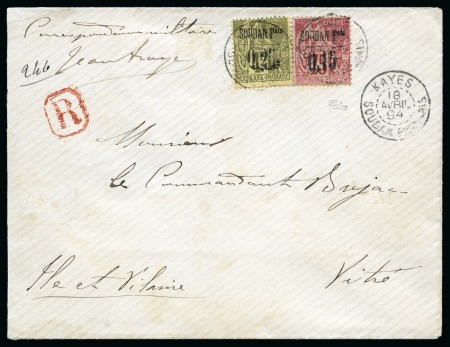 Correspondance militaire
246
R
SOUDAN Fais
0.25
SOUDAN Fais
0.15
KAYES
18
AVRIL
94
SOUDAN
Monsieur
Le Commandant Brujac
Ile et Vilaine Vitré